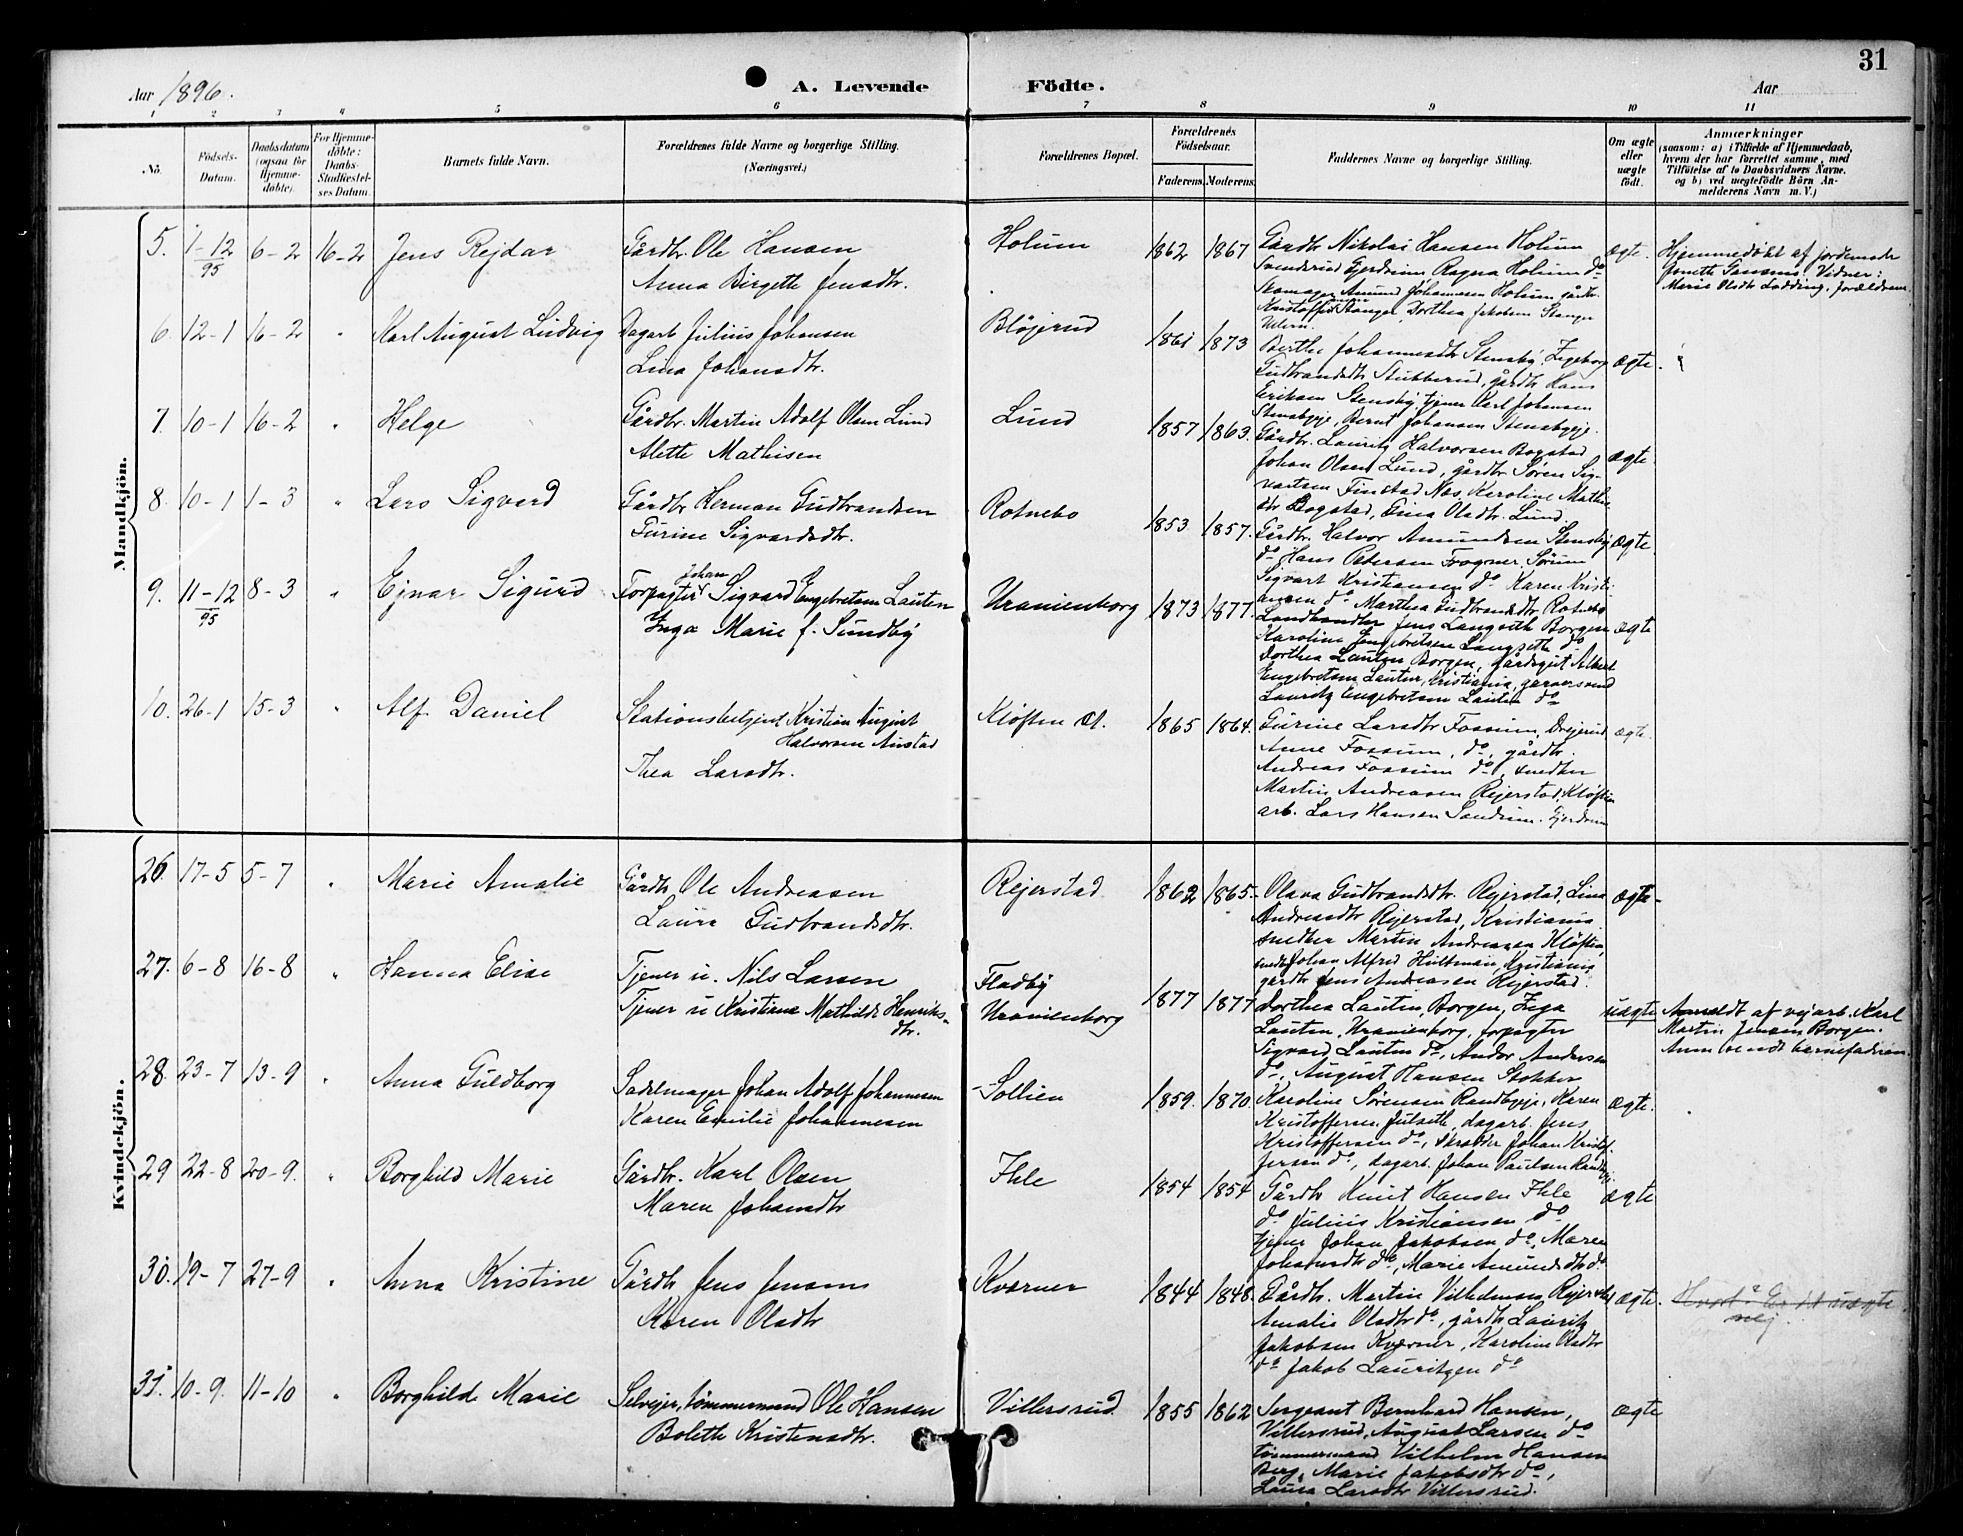 31
Aar 1896.
A. Levende Födte.
Aar
1 2 3 4 5 6 7 8 9 10 11
No.
Födsels-Datum.
Daabsdatum (ogsaa for Hjemme-döbte).
For Hjemme-döbte: Daabs-Stadfæstel-ses Datum.
Barnets fulde Navn.
Forældrenes fulde Navne og borgerlige Stilling. (Næringsvei.)
Forældrenes Bopæl.
Forældrenes Födselsaar.
Faderens. Moderens.
Faddernes Navne og borgerlige Stilling.
Om ægte eller uægte födt.
Anmærkninger
(saasom: a) i Tilfælde af Hjemmedaab,
hvem der har forrettet samme, med
Tilföielse af to Daabsvidners Navne.
og b) ved uægtefödte Börn An-
melderens Navn m. V.)
Mandkjön.
5. 1-12 95 6-2 16-2 Jens Rejdar
Gårdbr. Ole Hansen
Anna Birgette Jensdtr.
Holum 1862 1867
Gårdbr Nikolai Hansen Holum
Svendsrud Gjerdrum Ragna Holum do
Skomager Amund Johannesen Holum gårdbr.
Kristoffer Stanger, Dorthea Jakobsen Stanger
ægte.
Hjemmedöbt af jordemoder
Vidner:
Marie Olsdtr Lodding, forældrene
6. 12-1 16-2 " Karl August Ludvig
Dagarb Julius Johansen
Lina Johansdtr.
Blöjerud 1861 1873
Berthe Johannesdtr Stensby, Ingeborg
Gudbrandsdtr Stubberud, gårdbr Hans
Eriksen Stensby, tjener Karl Johansen
Stensbyeje, Bernt Johansen Stensbyeje.
ægte.
7. 10-1 16-2 " Helge
Gårdbr. Martin Adolf Olsen Lund
Alette Mathisen
Lund 1857 1863.
Gårdbr. Lauritz Halvorsen Bogstad
Johan Olsen Lund, gårdbr Sören Sig-
vartsen Finstad Næs, Karoline Mathis
dtr Bogstad, Gina Olsdtr. Lund.
ægte.
8. 10-1 1-3 " Lars Sigvard
Gårdbr Herman Gudbrandsen
Turine Sigvardsdtr.
Rotnebo 1853 1857.
Gårdbr. Halvor Amundsen Stensby
do Hans Petersen Frogner, Sörum
Sigvart Kristiansen do Karen Kristi-
ansen do Marthea Gudbrandsdtr Rotnebo
ægte.
9. 11-12 95 8-3 " Ejnar Sigurd
Forpagter Johan Sigvard Engebretsen Lauten
Inga Marie f. Sundby
Uranienborg 1873 1877.
Landhandler Jens Langseth Borgen
Karoline Engebretsen Langseth do
Dorthea Lauten Borgen, gårdsgut Albert
Engebretsen Lauten, Kristiania, garversvend
Lauritz Engebretsen Lauten do
ægte
10. 26-1 15-3 " Alf Daniel
Stationsbetjent Kristian August
Halvorsen Austad
Thea Larsdtr.
Klöften st. 1865 1864.
Gurine Larsdtr Fossum, Drejerud
Anne Fossum, do, gårdbr.
Andreas Fossum do, snedker
Martin Andreasen Rejerstad, Klöften
arb. Lars Hansen Sandrum. Gjerdrum
ægte.
Kvindekjön.
26. 17-5 5-7 " Marie Amalie
Gårdbr Ole Andreasen
Laura Gudbrandsdtr.
Rejerstad 1862 1865.
Olava Gudbrandsdtr. Rejerstad, Lina
Andreasdtr Rejerstad, Kristiania
snedker Martin Andreasen Klöften,
snedk Johan Alfred Hultman, Kristiania
gårdbr Jens Andreasen Rejerstad.
ægte
27. 6-8 16-8 " Hanna Elise
Tjener u. Nils Larsen
Tjener u Kristiane Mathilde Henriks-
dtr.
Fladby
Uranienborg 1877 1877
Dorthea Lauten, Borgen, Inga
Lauten, Uranienborg, forpagter
Sigvard Lauten do, Andor Andersen
do, August Hansen Stokker
uægte
Anmeldt af vejarb. Karl
Martin Jensen Borgen.
barnefaderen.
28. 23-7 13-9 " Anna Guldborg
Sadelmager Johan Adolf Johannesen
Karen Emilie Johannesen
Sollien 1859. 1870
Karoline Sörensen Randbyeje, Karen
Kristoffersen Julseth, dagarb. Jens
Kristoffersen do, skrædder Johan Kristof-
fersen do, dagarb. Johan Paulsen Randbyeje
ægte.
29 22-8 20-9. " Borghild Marie
Gårdbr. Karl Olsen
Maren Johansdtr
Ihle 1854 1854
Gårdbr Knut Hansen Ihle
do Julius Kristiansen do
tjener Johan Jakobsen do, Maren
Johansdtr do, Marie Amundsdtr do
ægte
30. 19-7 27-9 " Anna Kristine
Gårdbr Jens Jensen
Karen Olsdtr
Kværner 1844 1848.
Gårdbr. Martin Vilhelmsen Rejerstad
Amalie Olsdtr do, gårdbr Lauritz
Jakobsen Kværner, Karoline Olsdtr
do Jakob Lauritzen do
ægte.
nej.
31. 10-9. 11-10 " Borghilde Marie
Selvejer, tömmermand Ole Hansen
Bolette Kristensdtr.
Villersrud. 1855 1862
Sergeant Bernhard Hansen,
Villersrud, August Larsen do
tömmermand Vilhelm Hansen
Berg, Marie Jakobsdtr do,
Laura Larsdtr Villersrud.
ægte